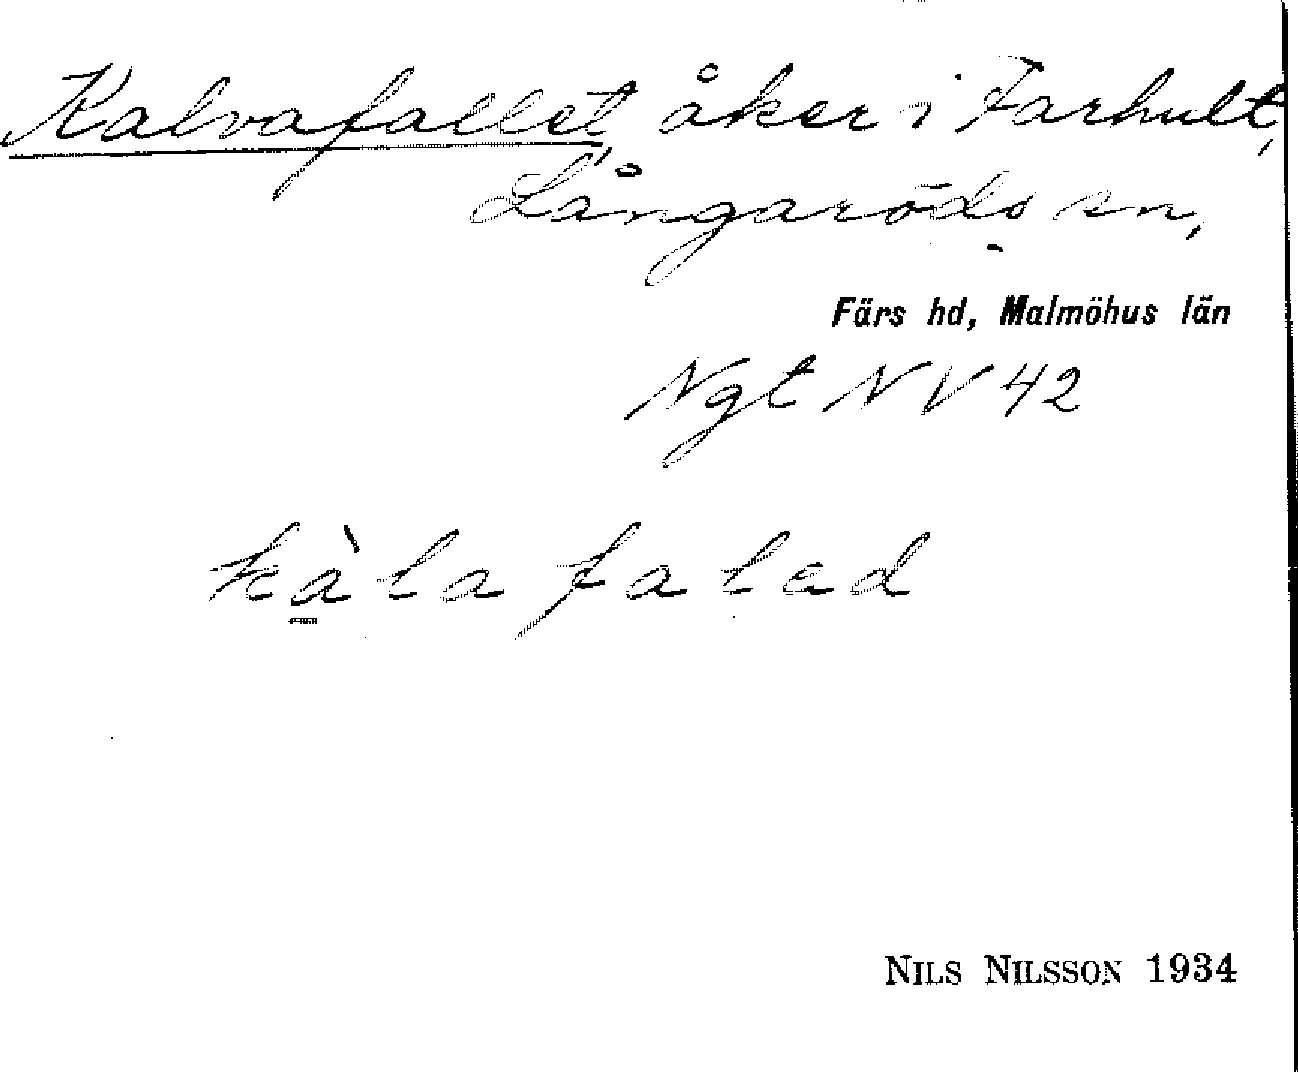 Kalvafallet, åker i Farhult,
Långaröds sn,
Färs hd, Malmöhus län
Ngt NV 42
kàlafaled
NILS NILSSON 1934